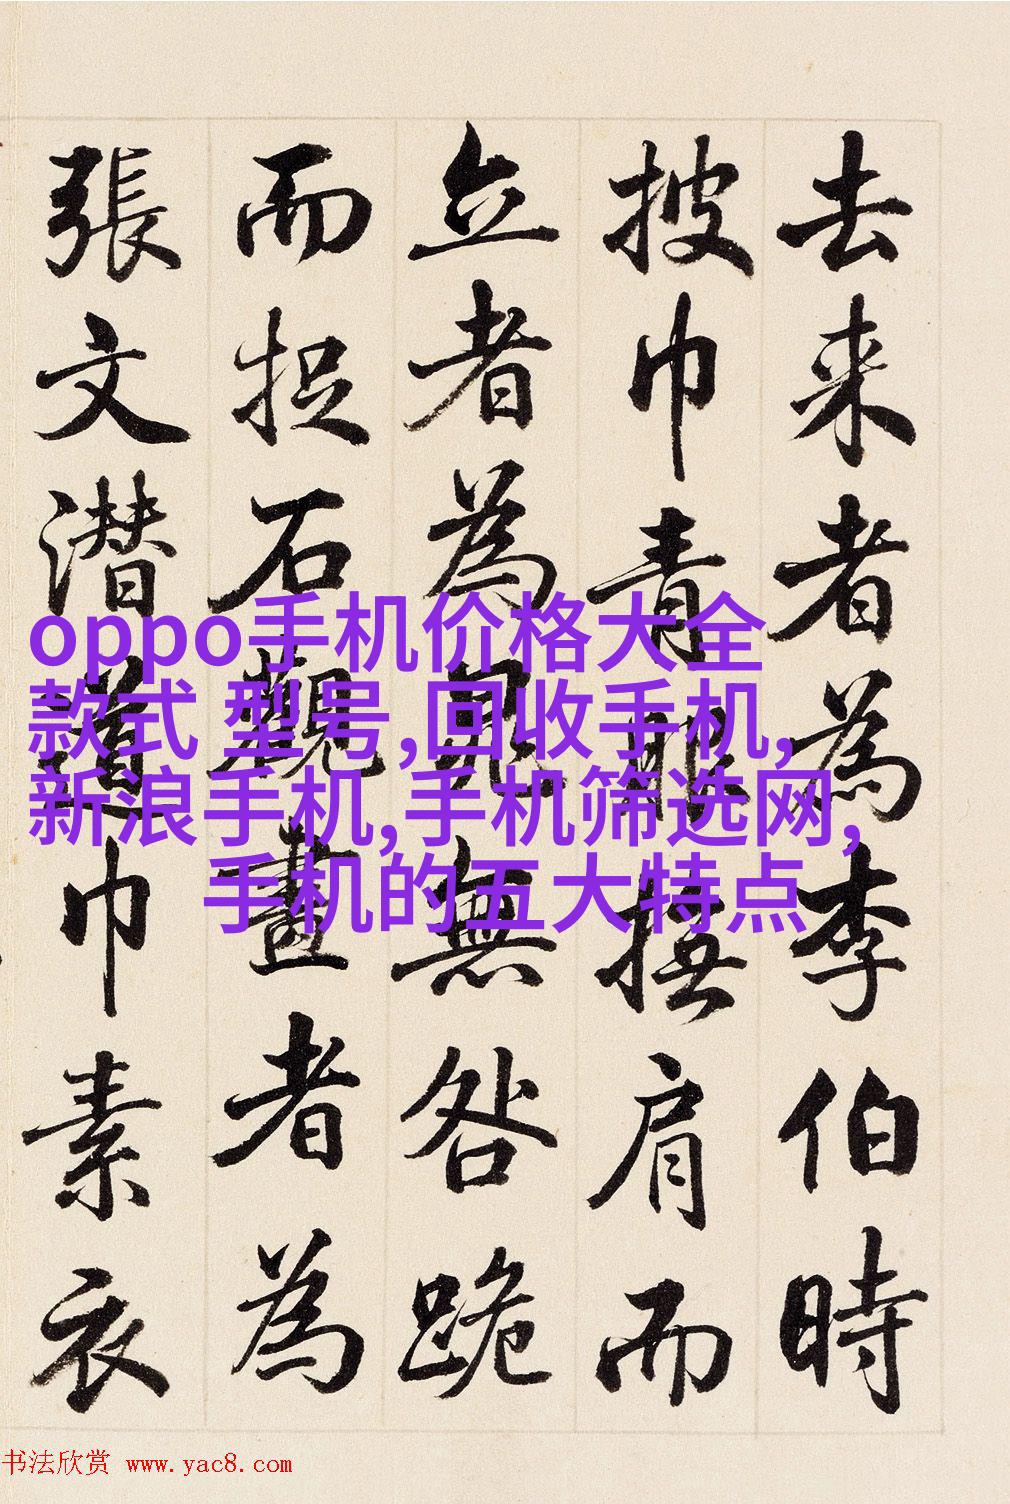 去来者為李伯時
披巾青服撫肩而
立者為晁無咎跪
而捉石觀畫者為
張文潜道巾素衣
oppo手机价格大全
款式 型号,回收手机,
新浪手机,手机筛选网,
手机的五大特点
书法欣赏 www.yac8.com